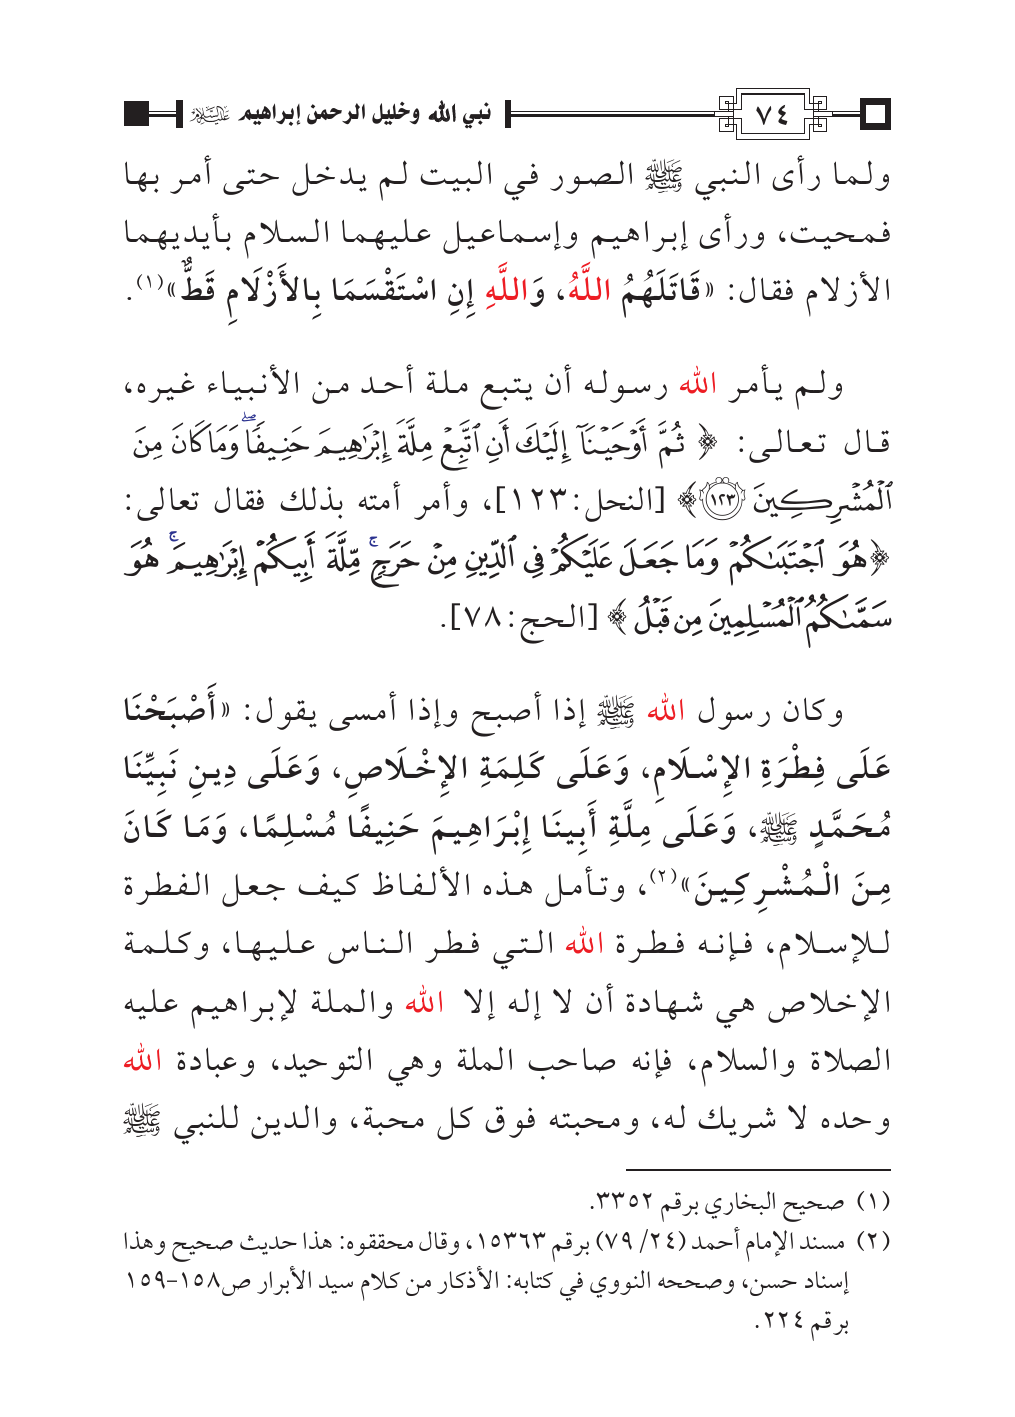 ٧٤ نبي الله وخليل الرحمن إبراهيم عليه السلام
ولما رأى النبي ﷺ الصور في البيت لم يدخل حتى أمر بها
فمحيت، ورأى إبراهيم وإسماعيل عليهما السلام بأيديهما
الأزلام فقال: «قَاتَلَهُمُ اللَّهُ، وَاللَّهِ إِنِ اسْتَقْسَمَا بِالأَزْلَامِ قَطُّ»(١).
ولم يأمر الله رسوله أن يتبع ملة أحد من الأنبياء غيره،
قال تعالى: ﴿ ثُمَّ أَوْحَيْنَآ إِلَيْكَ أَنِ ٱتَّبِعْ مِلَّةَ إِبْرَٰهِيمَ حَنِيفًا ۖ وَمَا كَانَ مِنَ
ٱلْمُشْرِكِينَ ١٢٣ ﴾ [النحل: ١٢٣]، وأمر أمته بذلك فقال تعالى:
﴿هُوَ ٱجْتَبَىٰكُمْ وَمَا جَعَلَ عَلَيْكُمْ فِى ٱلدِّينِ مِنْ حَرَجٍ ۚ مِّلَّةَ أَبِيكُمْ إِبْرَٰهِيمَ ۚ هُوَ
سَمَّىٰكُمُ ٱلْمُسْلِمِينَ مِن قَبْلُ ﴾ [الحج: ٧٨].
وكان رسول الله ﷺ إذا أصبح وإذا أمسى يقول: «أَصْبَحْنَا
عَلَى فِطْرَةِ الإِسْلَامِ، وَعَلَى كَلِمَةِ الإِخْلَاصِ، وَعَلَى دِينِ نَبِيِّنَا
مُحَمَّدٍ ﷺ، وَعَلَى مِلَّةِ أَبِينَا إِبْرَاهِيمَ حَنِيفًا مُسْلِمًا، وَمَا كَانَ
مِنَ الْمُشْرِكِينَ»(٢)، وتأمل هذه الألفاظ كيف جعل الفطرة
للإسلام، فإنه فطرة الله التي فطر الناس عليها، وكلمة
الإخلاص هي شهادة أن لا إله إلا الله والملة لإبراهيم عليه
الصلاة والسلام، فإنه صاحب الملة وهي التوحيد، وعبادة الله
وحده لا شريك له، ومحبته فوق كل محبة، والدين للنبي ﷺ
(١) صحيح البخاري برقم ٣٣٥٢.
(٢) مسند الإمام أحمد (٢٤/ ٧٩) برقم ١٥٣٦٣، وقال محققوه: هذا حديث صحيح وهذا
إسناد حسن، وصححه النووي في كتابه: الأذكار من كلام سيد الأبرار ص١٥٨-١٥٩
برقم ٢٢٤.